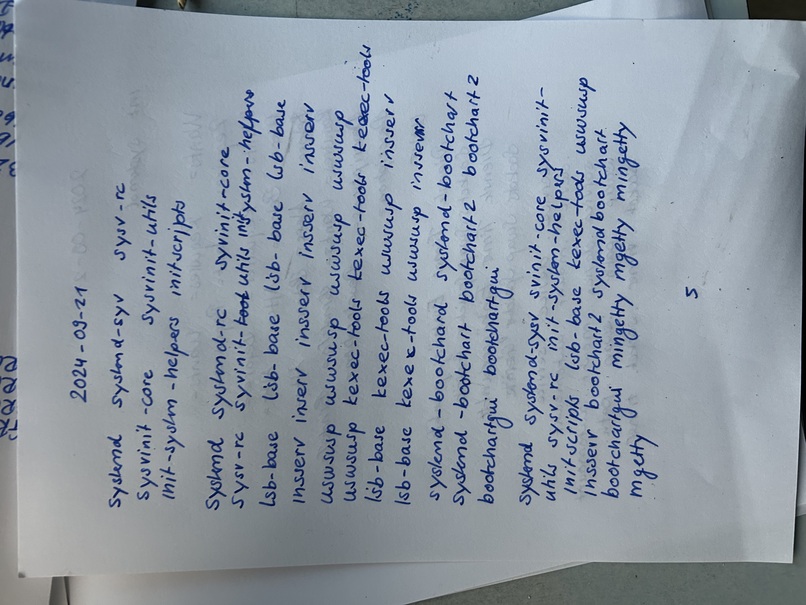 2024-09-21
systemd systemd-sysv sysv-rc
sysvinit-core sysvinit-utils
init-system-helpers initscripts
systemd systemd-rc syvinit-core
sysv-rc syvinit-utils init system-helpers
lsb-base lsb-base lsb-base lsb-base
insserv inserv insserv insserv insserv
uswsusp uswsusp uswsusp uswsusp
uswsusp kexec-tools kexec-tools kexec-tools
lsb-base kexec-tools uswsusp inserv
lsb-base kexex-tools uswsusp insserv
systemd-bootchard systemd-bootchart
systemd-bootchart bootchart2 bootchart2
bootchartgui bootchartgui
systemd systemd-sysv svinit-core sysvinit-
utils sysv-rc init-system-helpers
initscripts lsb-base kexec-tools uswsusp
insserv bootchart2 systemd bootchart
bootchartgui mingetty mgetty mingetty
mgetty
5